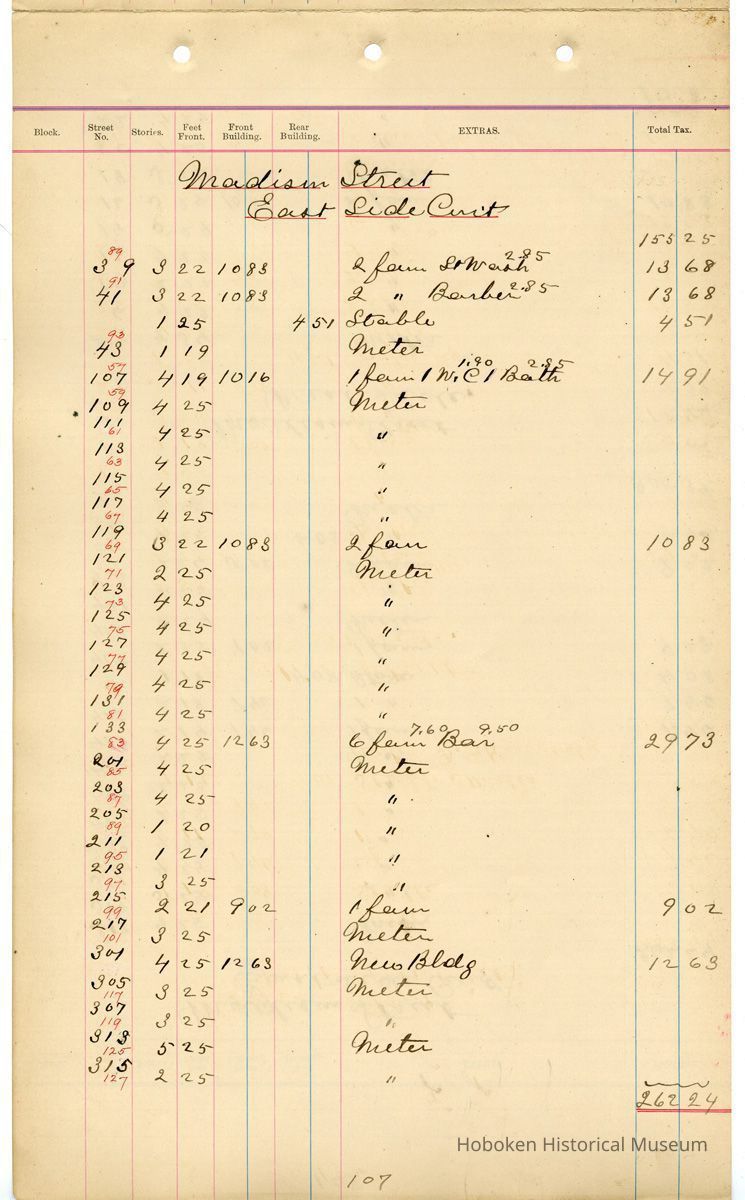 Block. Street No. Stories. Feet Front. Front Building. Rear Building. EXTRAS. Total Tax.
Madison Street
East Side Cont
155 25
89
39 3 22 10 83 2 fam St Wash 2.85 13 68
91
41 3 22 10 83 2 " Barber 2.85 13 68
1 25 4 51 Stable 4 51
93
43 1 19 Meter
57
107 4 19 10 16 1 fam 1 W.C 1.90 1 Bath 2.85 14 91
59
109 4 25 Meter
111
61 4 25 "
113
63 4 25 "
115
65 4 25 "
117
67 4 25 "
119
69 3 22 10 83 2 fam 10 83
121
71 2 25 Meter
123
73 4 25 "
125
75 4 25 "
127
77 4 25 "
129
79 4 25 "
131
81 4 25 "
133
83 4 25 12 63 6 fam 7.60 Bar 9.50 29 73
201
85 4 25 Meter
203
87 4 25 "
205
89 1 20 "
211
95 1 21 "
213
97 3 25 "
215
99 2 21 9 02 1 fam 9 02
217
101 3 25 Meter
301
4 25 12 63 New Bldg 12 63
305
117 3 25 Meter
307
119 3 25 "
313
125 5 25 Meter
315
127 2 25 "
262 24
Hoboken Historical Museum
107